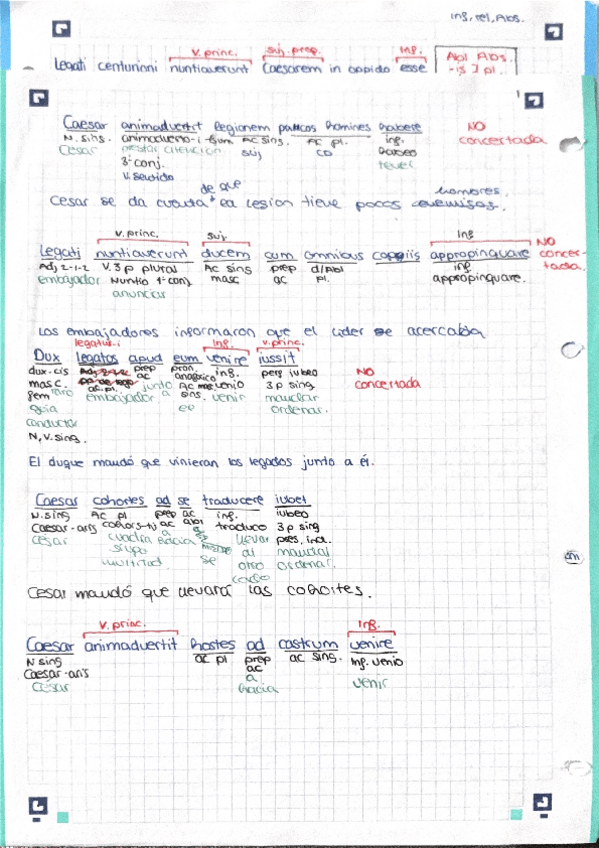 Inf, rel, Abs.
v. princ. suj. prep. inf.
Legati centurioni nuntiaverunt Caesarem in oppido esse
Abl Abs.
-is 3 pl.
1
Caesar animadvertit legionem paucos homines habere
NO concertada
N. sing. animadverto-i Ac sing. Ac pl. inf.
César prestar atención suj CD habeo
3ª conj. tener
V. sentido
de que hombres.
César se da cuenta la legión tiene pocos enemigos.
v. princ. suj. Inf
Legati nuntiaverunt ducem cum omnibus copiis appropinquare
NO concertada.
Adj 2-1-2 V. 3 p plural Ac sing prep d/Abl inf.
embajador Nuntio 1ª conj. masc ac pl. appropinquare.
anunciar
Los embajadores informaron que el líder se acercaba
legatus-i Inf. v. princ.
Dux legatos apud eum venire iussit
dux-cis prep pron. inf. perf iubeo NO
masc. ac anafórico venio 3 p sing concertada
ac. pl. junto Ac mas venir mandar
guía embajador a sing. ordenar.
conductor
N, V. sing.
El duque mandó que vinieran los legados junto a él.
Caesar cohortes ad se traducere iubet
N. sing Ac pl prep ac inf. iubeo
Caesar-aris cohors-tis ac abl traduco 3 p sing
César hacia llevar pres. ind.
grupo al mandar
multitud se otro ordenar.
César mandó que llevará las cohortes.
v. princ. Inf.
Caesar animadvertit hostes ad castrum venire
N sing ac pl prep ac sing. Inf. venio
Caesar-aris ac
César a venir
hacia